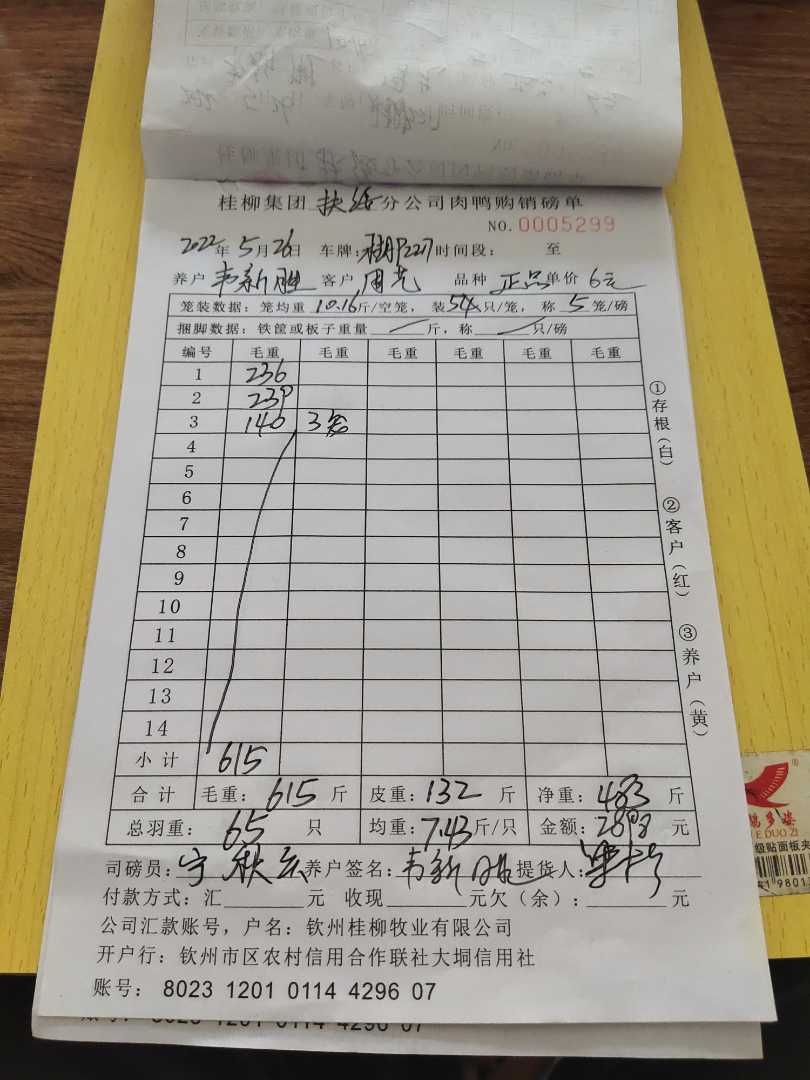 桂柳集团 扶绥 分公司肉鸭购销磅单
NO. 0005299
2022年5月26日 车牌: 时间段: 至
养户 韦新胜 客户 周光 品种 正品 单价 6元
笼装数据: 笼均重 10.16 斤/空笼, 装 5.4 只/笼, 称 5 笼/磅
捆脚数据: 铁筐或板子重量 斤, 称 只/磅
编号 毛重 毛重 毛重 毛重 毛重 毛重
1 236
2 239
3 140 3笼
4
5
6
7
8
9
10
11
12
13
14
小计 615
合计 毛重: 615 斤 皮重: 132 斤 净重: 483 斤
总羽重: 65 只 均重: 7.43 斤/只 金额: 2898 元
司磅员: 宁秋云 养户签名: 韦新胜 提货人:
付款方式: 汇 元 收现 元欠(余): 元
公司汇款账号, 户名: 钦州桂柳牧业有限公司
开户行: 钦州市区农村信用合作联社大垌信用社
账号: 8023 1201 0114 4296 07
①存根(白)
②客户(红)
③养户(黄)
E DUO ZI
级贴面板夹
8023 1201 0114 4296 07